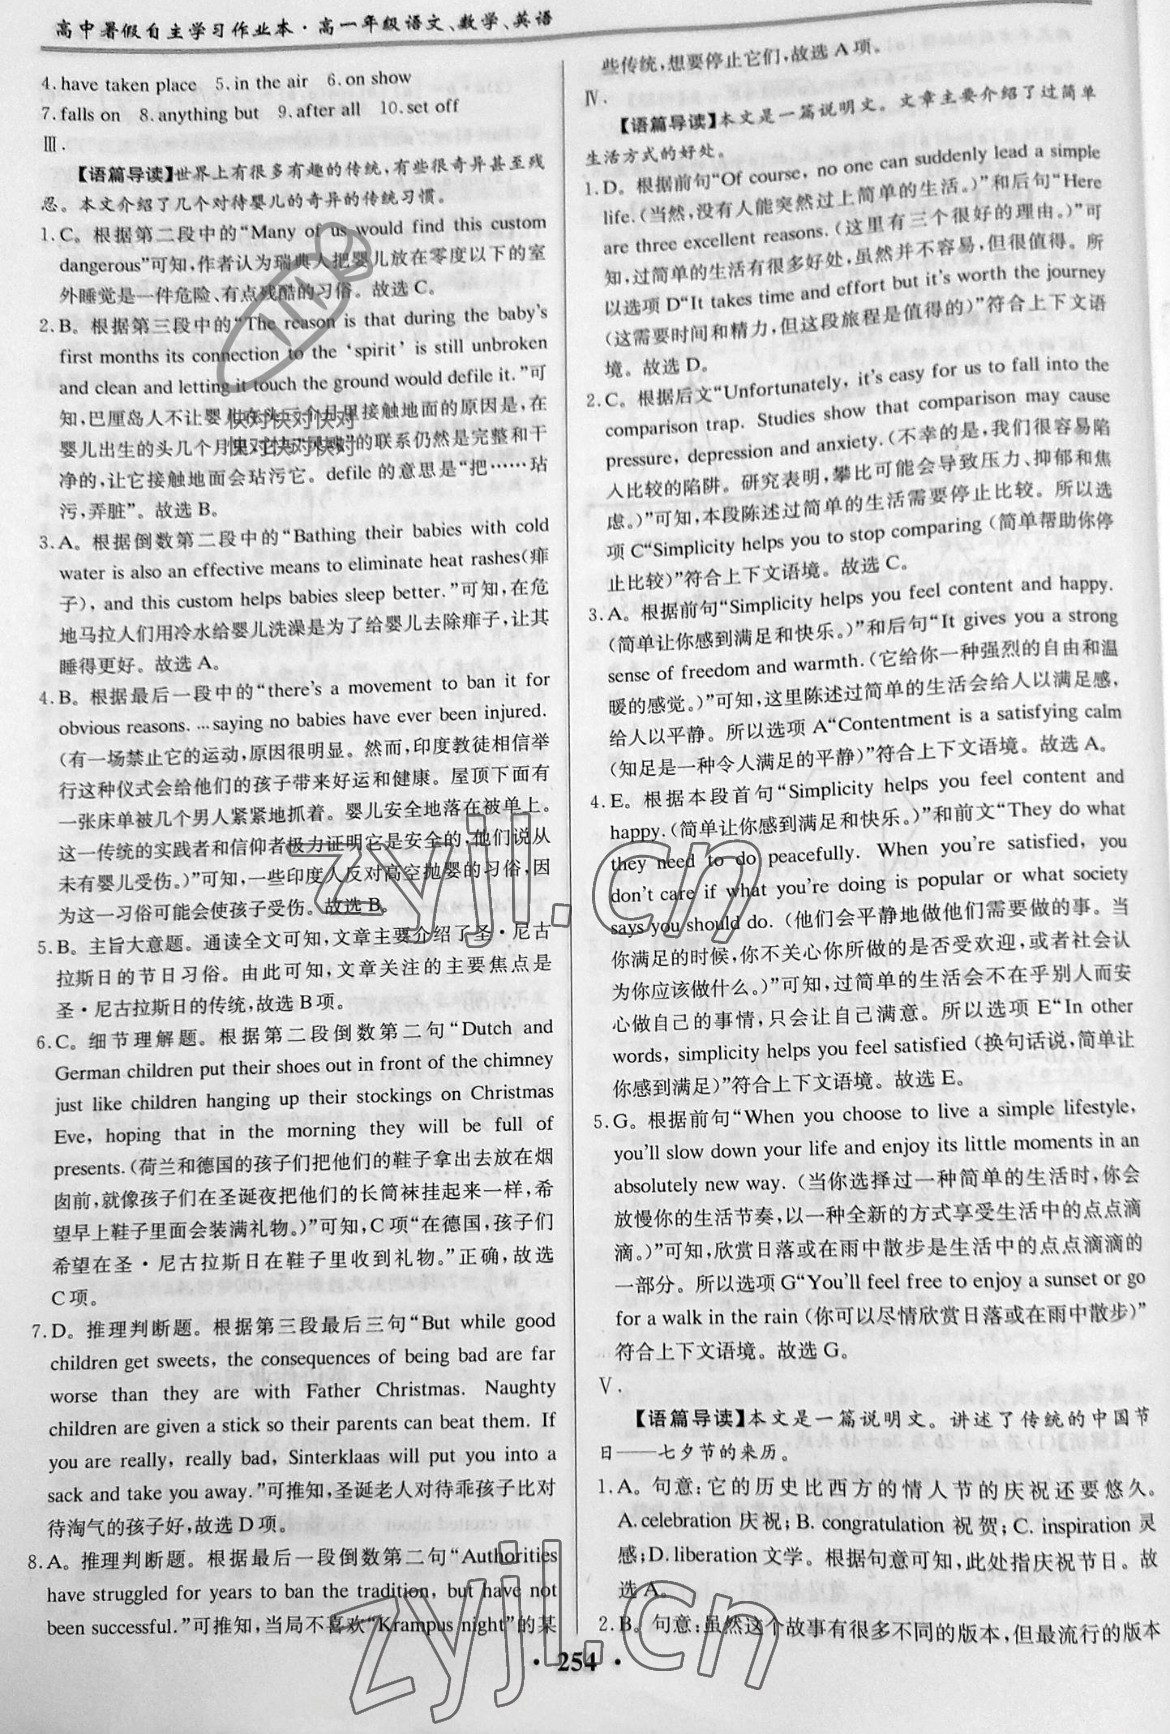 高中暑假自主学习作业本·高一年级语文、数学、英语
4. have taken place 5. in the air 6. on show
7. falls on 8. anything but 9. after all 10. set off
Ⅲ.
【语篇导读】世界上有很多有趣的传统,有些很奇异甚至残
忍。本文介绍了几个对待婴儿的奇异的传统习惯。
1. C。根据第二段中的“Many of us would find this custom
dangerous”可知,作者认为瑞典人把婴儿放在零度以下的室
外睡觉是一件危险、有点残酷的习俗。故选 C。
2. B。根据第三段中的“The reason is that during the baby's
first months its connection to the ‘spirit’ is still unbroken
and clean and letting it touch the ground would defile it.”可
知,巴厘岛人不让婴儿在头三个月里接触地面的原因是,在
婴儿出生的头几个月里,它与灵魂的联系仍然是完整和干
净的,让它接触地面会玷污它。defile 的意思是“把……玷
污,弄脏”。故选 B。
3. A。根据倒数第二段中的“Bathing their babies with cold
water is also an effective means to eliminate heat rashes(痱
子), and this custom helps babies sleep better.”可知,在危
地马拉人们用冷水给婴儿洗澡是为了给婴儿去除痱子,让其
睡得更好。故选 A。
4. B。根据最后一段中的“there's a movement to ban it for
obvious reasons. …saying no babies have ever been injured.
(有一场禁止它的运动,原因很明显。然而,印度教徒相信举
行这种仪式会给他们的孩子带来好运和健康。屋顶下面有
一张床单被几个男人紧紧地抓着。婴儿安全地落在被单上。
这一传统的实践者和信仰者极力证明它是安全的,他们说从
未有婴儿受伤。)”可知,一些印度人反对高空抛婴的习俗,因
为这一习俗可能会使孩子受伤。故选 B。
5. B。主旨大意题。通读全文可知,文章主要介绍了圣·尼古
拉斯日的节日习俗。由此可知,文章关注的主要焦点是
圣·尼古拉斯日的传统,故选 B 项。
6. C。细节理解题。根据第二段倒数第二句“Dutch and
German children put their shoes out in front of the chimney
just like children hanging up their stockings on Christmas
Eve, hoping that in the morning they will be full of
presents.(荷兰和德国的孩子们把他们的鞋子拿出去放在烟
囱前,就像孩子们在圣诞夜把他们的长筒袜挂起来一样,希
望早上鞋子里面会装满礼物。)”可知,C 项“在德国,孩子们
希望在圣·尼古拉斯日在鞋子里收到礼物。”正确,故选
C 项。
7. D。推理判断题。根据第三段最后三句“But while good
children get sweets, the consequences of being bad are far
worse than they are with Father Christmas. Naughty
children are given a stick so their parents can beat them. If
you are really, really bad, Sinterklaas will put you into a
sack and take you away.”可推知,圣诞老人对待乖孩子比对
待淘气的孩子好,故选 D 项。
8. A。推理判断题。根据最后一段倒数第二句“Authorities
have struggled for years to ban the tradition, but have not
been successful.”可推知,当局不喜欢“Krampus night”的某
些传统,想要停止它们,故选 A 项。
Ⅳ.
【语篇导读】本文是一篇说明文。文章主要介绍了过简单
生活方式的好处。
1. D。根据前句“Of course, no one can suddenly lead a simple
life.(当然,没有人能突然过上简单的生活。)”和后句“Here
are three excellent reasons.(这里有三个很好的理由。)”可
知,过简单的生活有很多好处,虽然并不容易,但很值得。所
以选项 D“It takes time and effort but it's worth the journey
(这需要时间和精力,但这段旅程是值得的)”符合上下文语
境。故选 D。
2. C。根据后文“Unfortunately, it's easy for us to fall into the
comparison trap. Studies show that comparison may cause
pressure, depression and anxiety.(不幸的是,我们很容易陷
入比较的陷阱。研究表明,攀比可能会导致压力、抑郁和焦
虑。)”可知,本段陈述过简单的生活需要停止比较。所以选
项 C“Simplicity helps you to stop comparing (简单帮助你停
止比较)”符合上下文语境。故选 C。
3. A。根据前句“Simplicity helps you feel content and happy.
(简单让你感到满足和快乐。)”和后句“It gives you a strong
sense of freedom and warmth.(它给你一种强烈的自由和温
暖的感觉。)”可知,这里陈述过简单的生活会给人以满足感,
给人以平静。所以选项 A“Contentment is a satisfying calm
(知足是一种令人满足的平静)”符合上下文语境。故选 A。
4. E。根据本段首句“Simplicity helps you feel content and
happy.(简单让你感到满足和快乐。)”和前文“They do what
they need to do peacefully. When you're satisfied, you
don't care if what you're doing is popular or what society
says you should do.(他们会平静地做他们需要做的事。当
你满足的时候,你不关心你所做的是否受欢迎,或者社会认
为你应该做什么。)”可知,过简单的生活会不在乎别人而安
心做自己的事情,只会让自己满意。所以选项 E“In other
words, simplicity helps you feel satisfied (换句话说,简单让
你感到满足)”符合上下文语境。故选 E。
5. G。根据前句“When you choose to live a simple lifestyle,
you'll slow down your life and enjoy its little moments in an
absolutely new way.(当你选择过一种简单的生活时,你会
放慢你的生活节奏,以一种全新的方式享受生活中的点点滴
滴。)”可知,欣赏日落或在雨中散步是生活中的点点滴滴的
一部分。所以选项 G“You'll feel free to enjoy a sunset or go
for a walk in the rain (你可以尽情欣赏日落或在雨中散步)”
符合上下文语境。故选 G。
Ⅴ.
【语篇导读】本文是一篇说明文。讲述了传统的中国节
日——七夕节的来历。
1. A。句意:它的历史比西方的情人节的庆祝还要悠久。
A. celebration 庆祝; B. congratulation 祝贺; C. inspiration 灵
感; D. liberation 文学。根据句意可知,此处指庆祝节日。故
选 A。
2. B。句意:虽然这个故事有很多不同的版本,但最流行的版本
· 254 ·
快对快对快对
快对快对快对
zyjl.cn
zyjl.cn